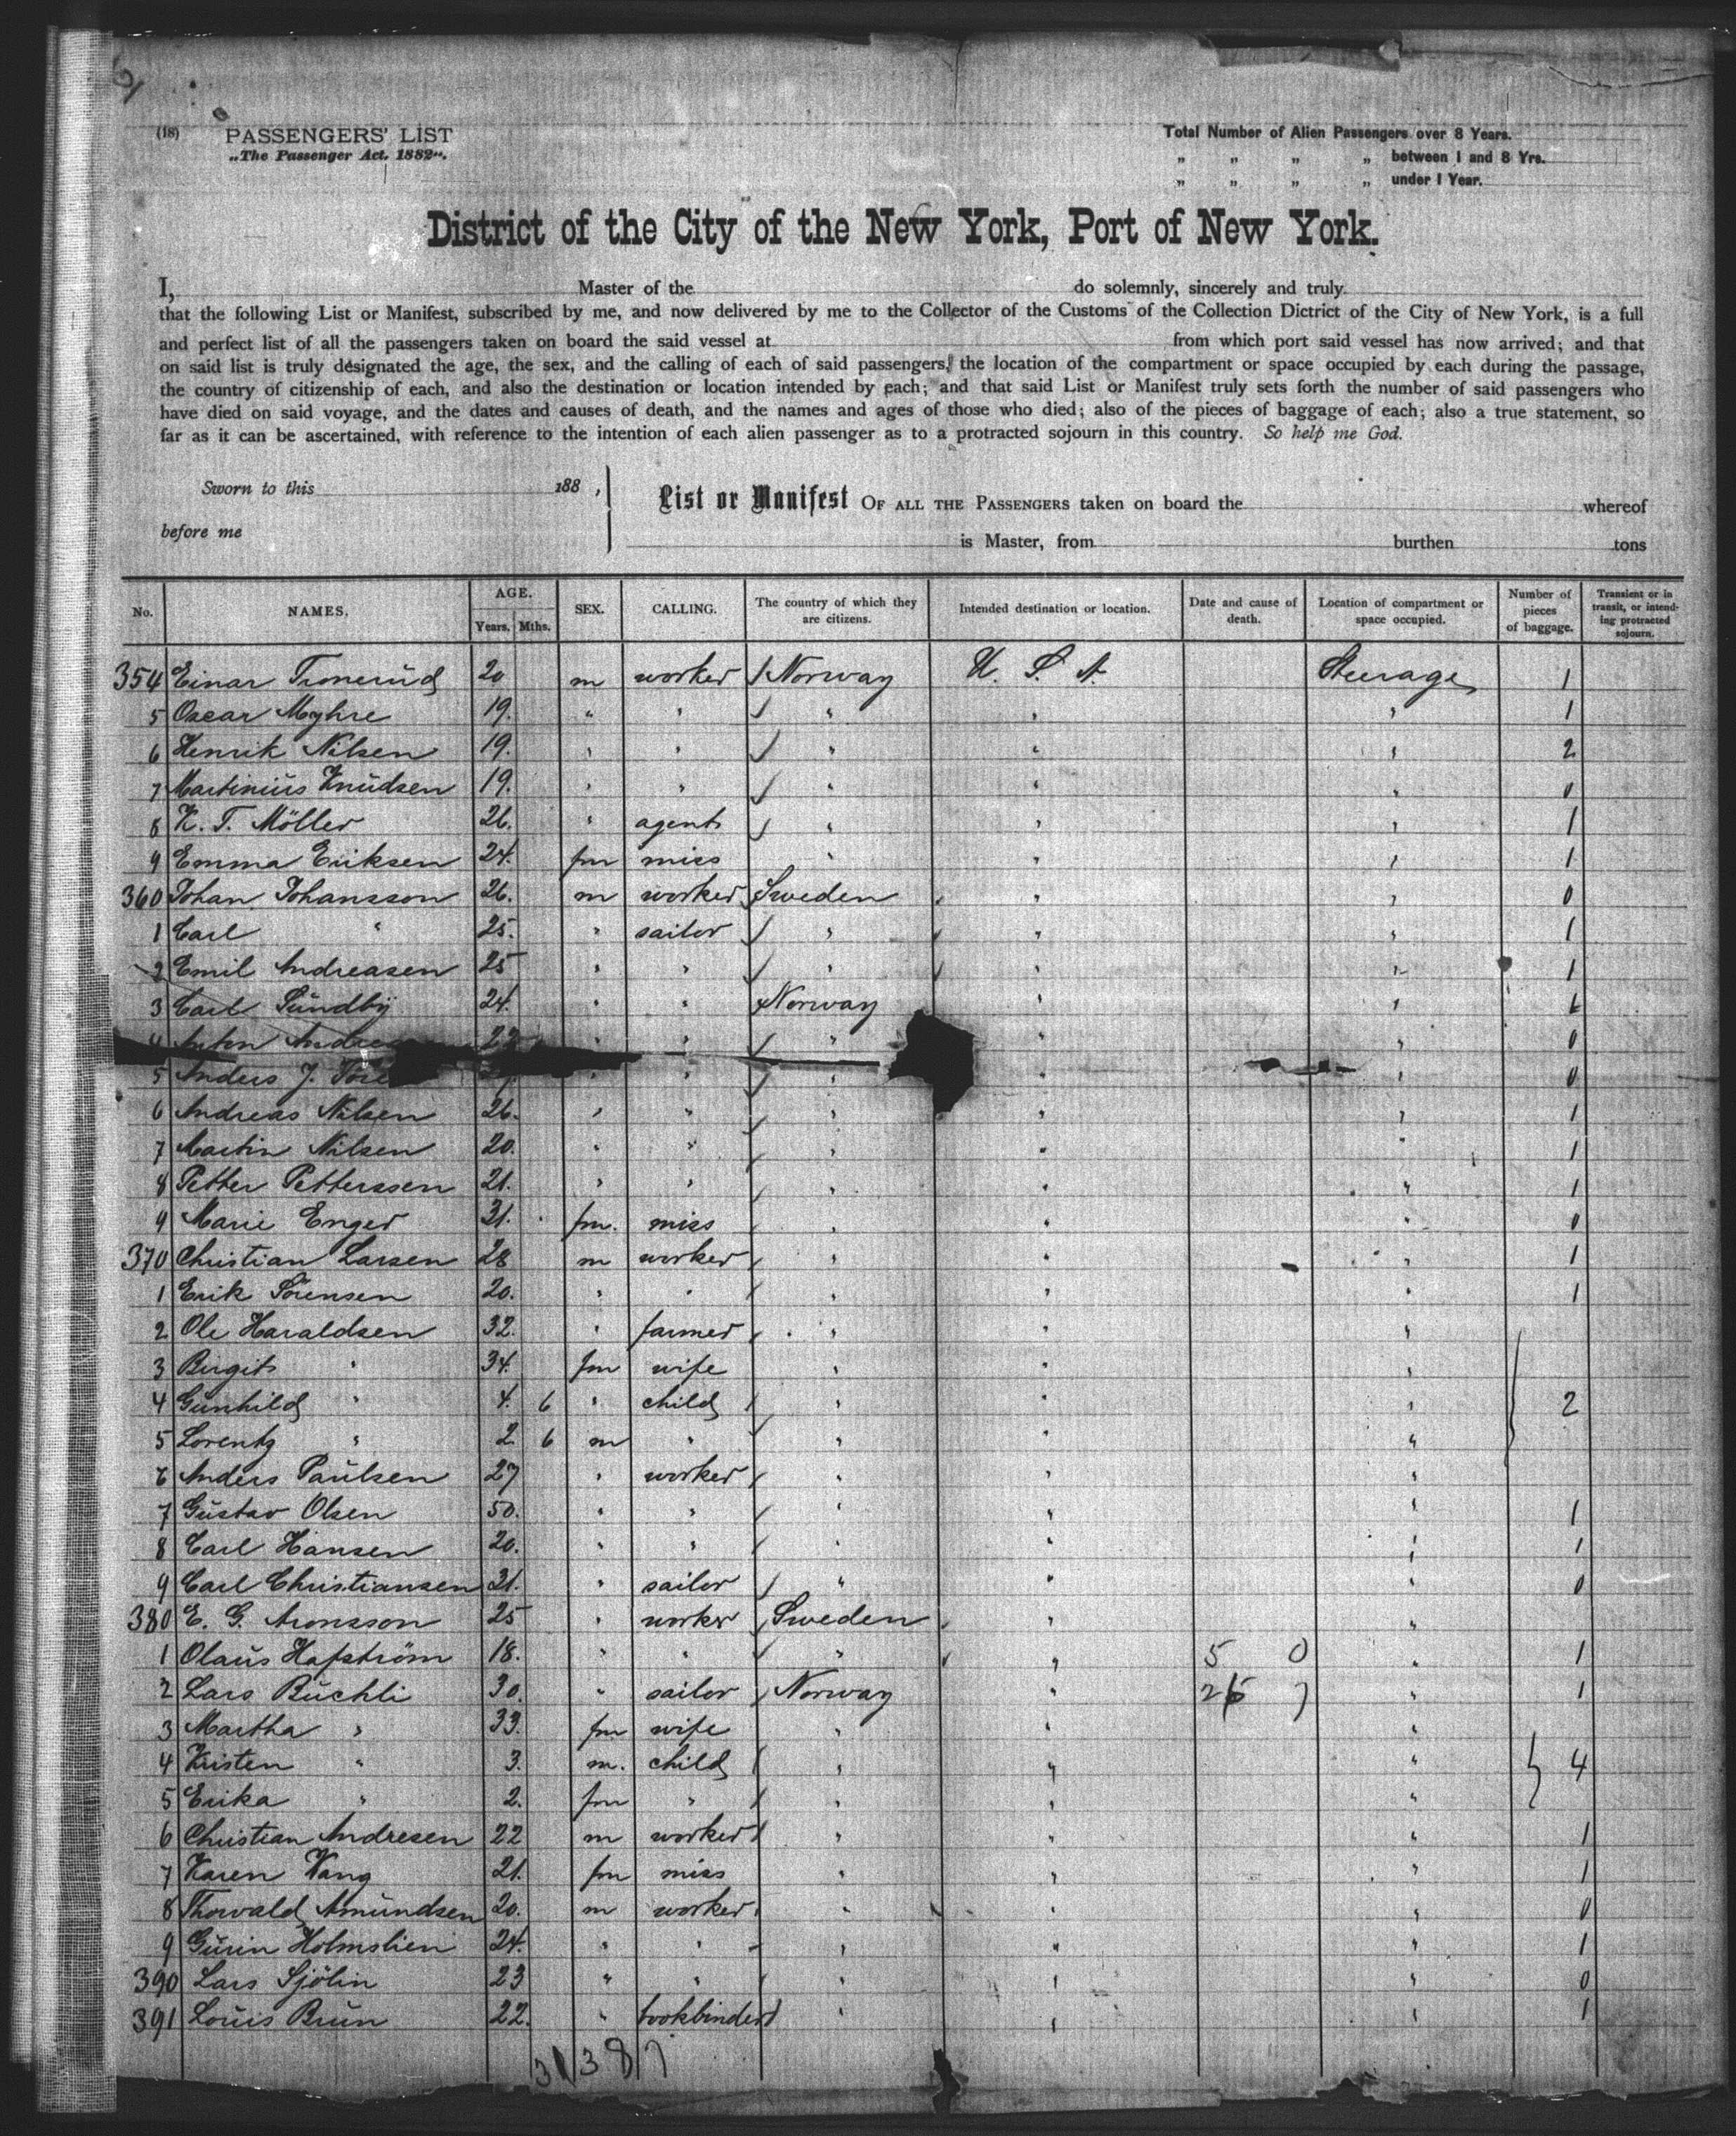 (18)
PASSENGERS' LIST
„The Passenger Act. 1882“.
Total Number of Alien Passengers over 8 Years.
„ „ „ „ between 1 and 8 Yrs.
„ „ „ „ under 1 Year.
District of the City of the New York, Port of New York.
I, Master of the do solemnly, sincerely and truly
that the following List or Manifest, subscribed by me, and now delivered by me to the Collector of the Customs of the Collection Dictrict of the City of New York, is a full
and perfect list of all the passengers taken on board the said vessel at from which port said vessel has now arrived; and that
on said list is truly designated the age, the sex, and the calling of each of said passengers, the location of the compartment or space occupied by each during the passage,
the country of citizenship of each, and also the destination or location intended by each; and that said List or Manifest truly sets forth the number of said passengers who
have died on said voyage, and the dates and causes of death, and the names and ages of those who died; also of the pieces of baggage of each; also a true statement, so
far as it can be ascertained, with reference to the intention of each alien passenger as to a protracted sojourn in this country. So help me God.
Sworn to this 188 ,
before me
List or Manifest OF ALL THE PASSENGERS taken on board the whereof
is Master, from burthen tons
No. NAMES. AGE. Years. Mths. SEX. CALLING. The country of which they are citizens. Intended destination or location. Date and cause of death. Location of compartment or space occupied. Number of pieces of baggage. Transient or in transit, or intending protracted sojourn.
354 Einar Tronerud 20 m worker Norway U. S. A. Steerage 1
5 Oscar Myhre 19. " " " " " 1
6 Henrik Nilsen 19. " " " " " 2
7 Martinius Knudsen 19. " " " " " 0
8 K. T. Möller 26. " agent " " " 1
9 Emma Eriksen 24. fm miss " " " 1
360 Johan Johansson 26. m worker Sweden " " 0
1 Carl " 25. " sailor " " " 1
2 Emil Andreasen 25 " " " " " 1
3 Carl Sundby 24. " " Norway " "
4 Anton " " " " " 0
5 Anders J. " " " " " 0
6 Andreas Nilsen 26. " " " " " 1
7 Martin Nilsen 20. " " " " " 1
8 Petter Petterssen 21. " " " " " 1
9 Marie Enger 31. fm. miss " " " 0
370 Christian Larsen 28 m worker " " " 1
1 Erik Sörensen 20. " " " " " 1
2 Ole Haraldsen 32. " farmer " " "
3 Birgit " 34. fm wife " " "
4 Gunhild " 4. 6 " child " " " 2
5 Lorentz " 2 6 m " " " "
6 Anders Paulsen 27 " worker " " "
7 Gustav Olsen 50. " " " " " 1
8 Carl Hansen 20. " " " " " 1
9 Carl Christiansen 31. " sailor " " " 0
380 E. G. Aronsson 25 " worker Sweden " "
1 Olaus Hafström 18. " " " " 5 0 " 1
2 Lars Büchli 30. " sailor Norway " " 1
3 Martha " 33. fm wife " " "
4 Kristen " 3. m. child " " " 4
5 Erika " 2. fm " " " "
6 Christian Andresen 22 m worker " " " 1
7 Karen Vang 21. fm miss " " " 1
8 Thorvald Amundsen 20. m worker " " " 0
9 Gurin Holmslien 24. " " " " " 1
390 Lars Sjölin 23 " " " " " 0
391 Louis Brun 22. " bookbinder " " " 1